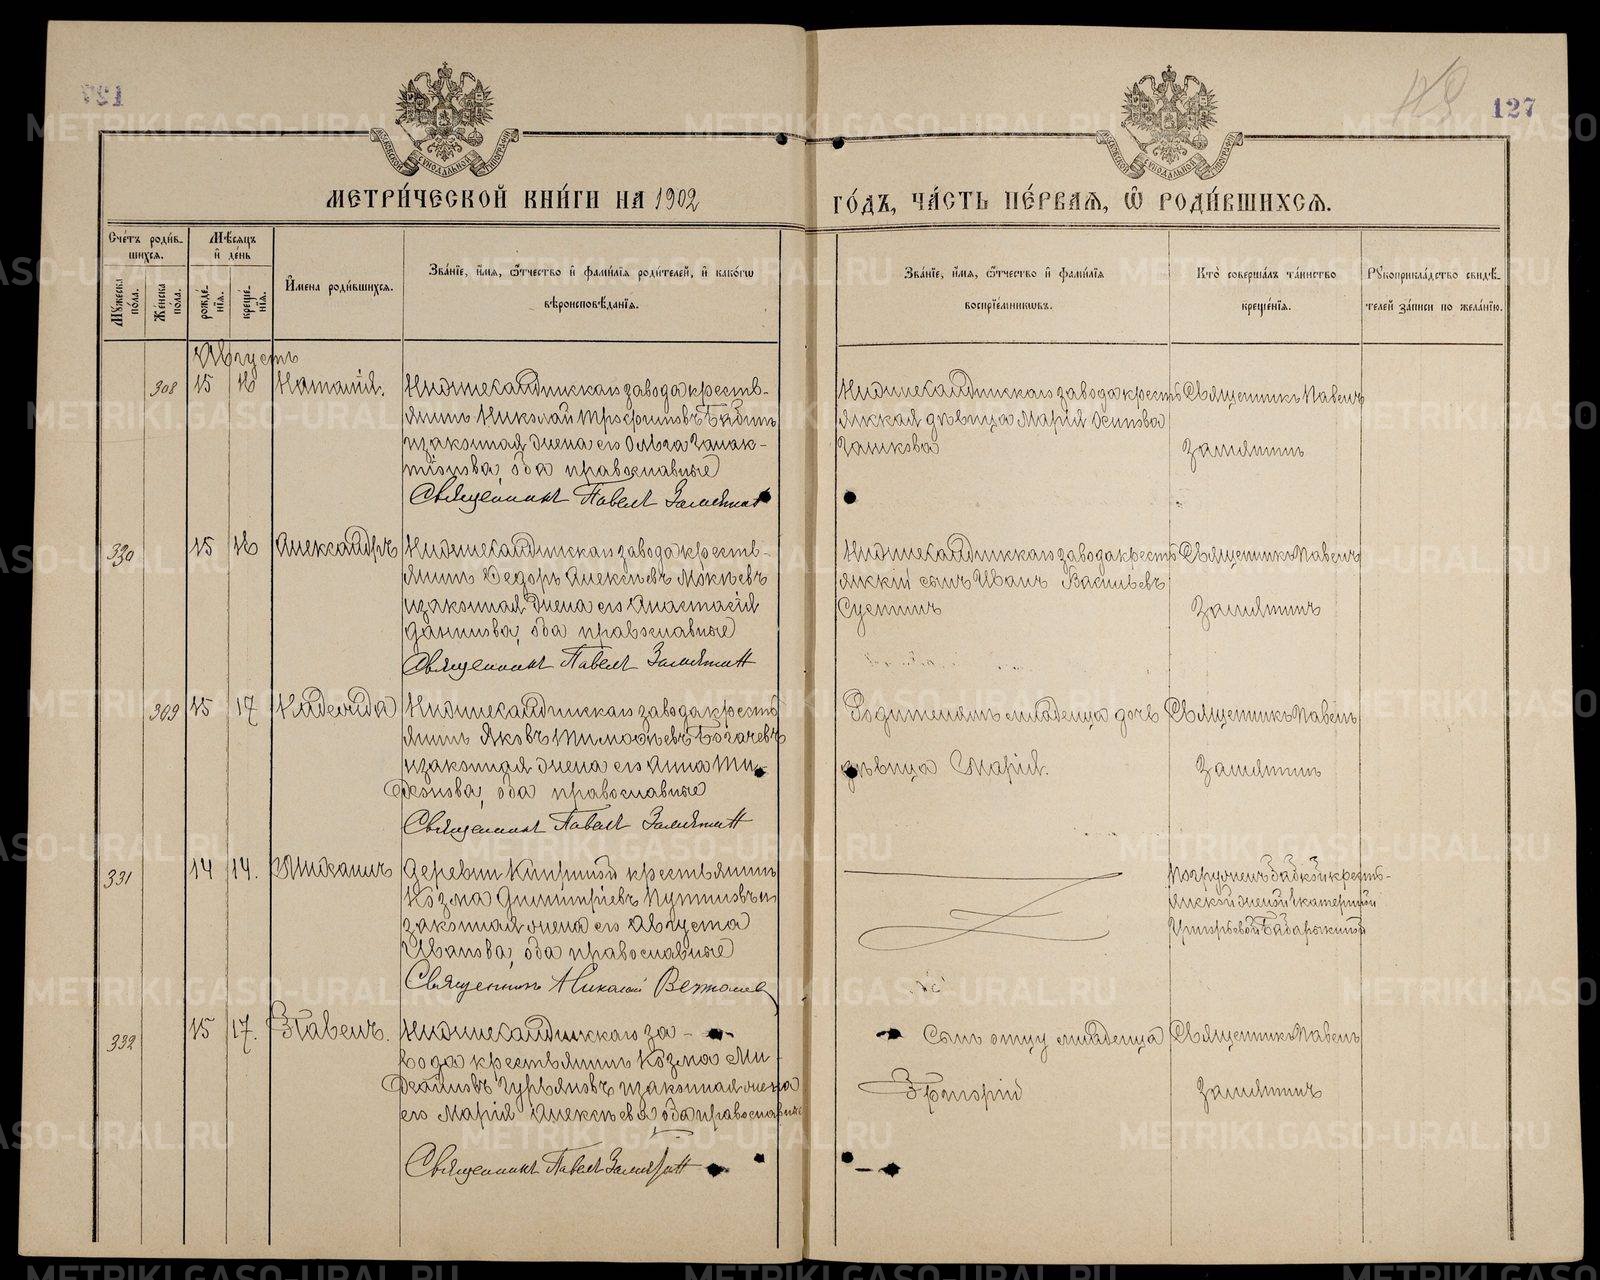 127
127
МЕТРИ́ЧЕСКОЙ КНИ́ГИ НА 1902
ГО́ДЪ, ЧА́СТЬ ПЕ́РВАѦ, Ѡ РОДИ́ВШИХСѦ.
Сче́тъ роди́в-
шихсѧ.
Мѣ́сѧцъ
и҆ де́нь
Му́жеска по́ла.
Же́нска по́ла.
рожде́нїѧ.
креще́нїѧ.
И҆мена̀ роди́вшихсѧ.
Зва́нїе, и҆́мѧ, ѻ҆́тчество и҆ фами́лїѧ роди́телей, и҆ како́гѡ
вѣроисповѣ́данїѧ.
Зва́нїе, и҆́мѧ, ѻ҆́тчество и҆ фами́лїѧ
воспрїе́мникѡвъ.
Кто̀ соверша́лъ та́инство
креще́нїѧ.
Рукоприкла́дство свидѣ́-
телей за́писи по жела́нїю.
Августъ
308 15 16 Наталія.
Нижнесалдинскаго завода кресть-
янинъ Николай Трофимовъ Бабинъ
и законная жена его Ольга Галак-
тіонова, оба православные
Священникъ Павелъ Замятинъ
Нижнесалдинскаго завода кресть
янская дѣвица Марія Осипова
Священникъ Павелъ
Замятинъ
330 15 16 Александръ
Нижнесалдинскаго завода кресть-
янинъ Ѳедоръ Алексѣевъ Мокѣевъ
и законная жена его Анастасія
Данилова, оба православные
Священникъ Павелъ Замятинъ
Нижнесалдинскаго завода кресть
янскій сынъ Иванъ Васильевъ
Сустинъ
Священникъ Павелъ
Замятинъ
309 15 17 Надежда
Нижнесалдинскаго завода кресть
янинъ Яковъ Тимоѳеевъ Богачевъ
и законная жена его Анна Ти-
, оба православные
Священникъ Павелъ Замятинъ
Родителямъ младенца дочь
дѣвица Марія.
Священникъ Павелъ
Замятинъ
331 14 14. Михаилъ
Деревни Никитиной крестьянинъ
Козма Димитріевъ Путиловъ и
законная жена его Августа
Иванова, оба православные
Священникъ Николай
Погруженъ бабкой кресть-
янской женой Екатериной
Григорьевой Бабарыкиной
332 15 17. Павелъ.
Нижнесалдинскаго за-
вода крестьянинъ Козма Ми-
хайловъ Гурьяновъ и законная жена
его Марія Алексѣева, оба православные
Священникъ Павелъ Замятинъ
Сынъ отцу младенца
Григорій
Священникъ Павелъ
Замятинъ